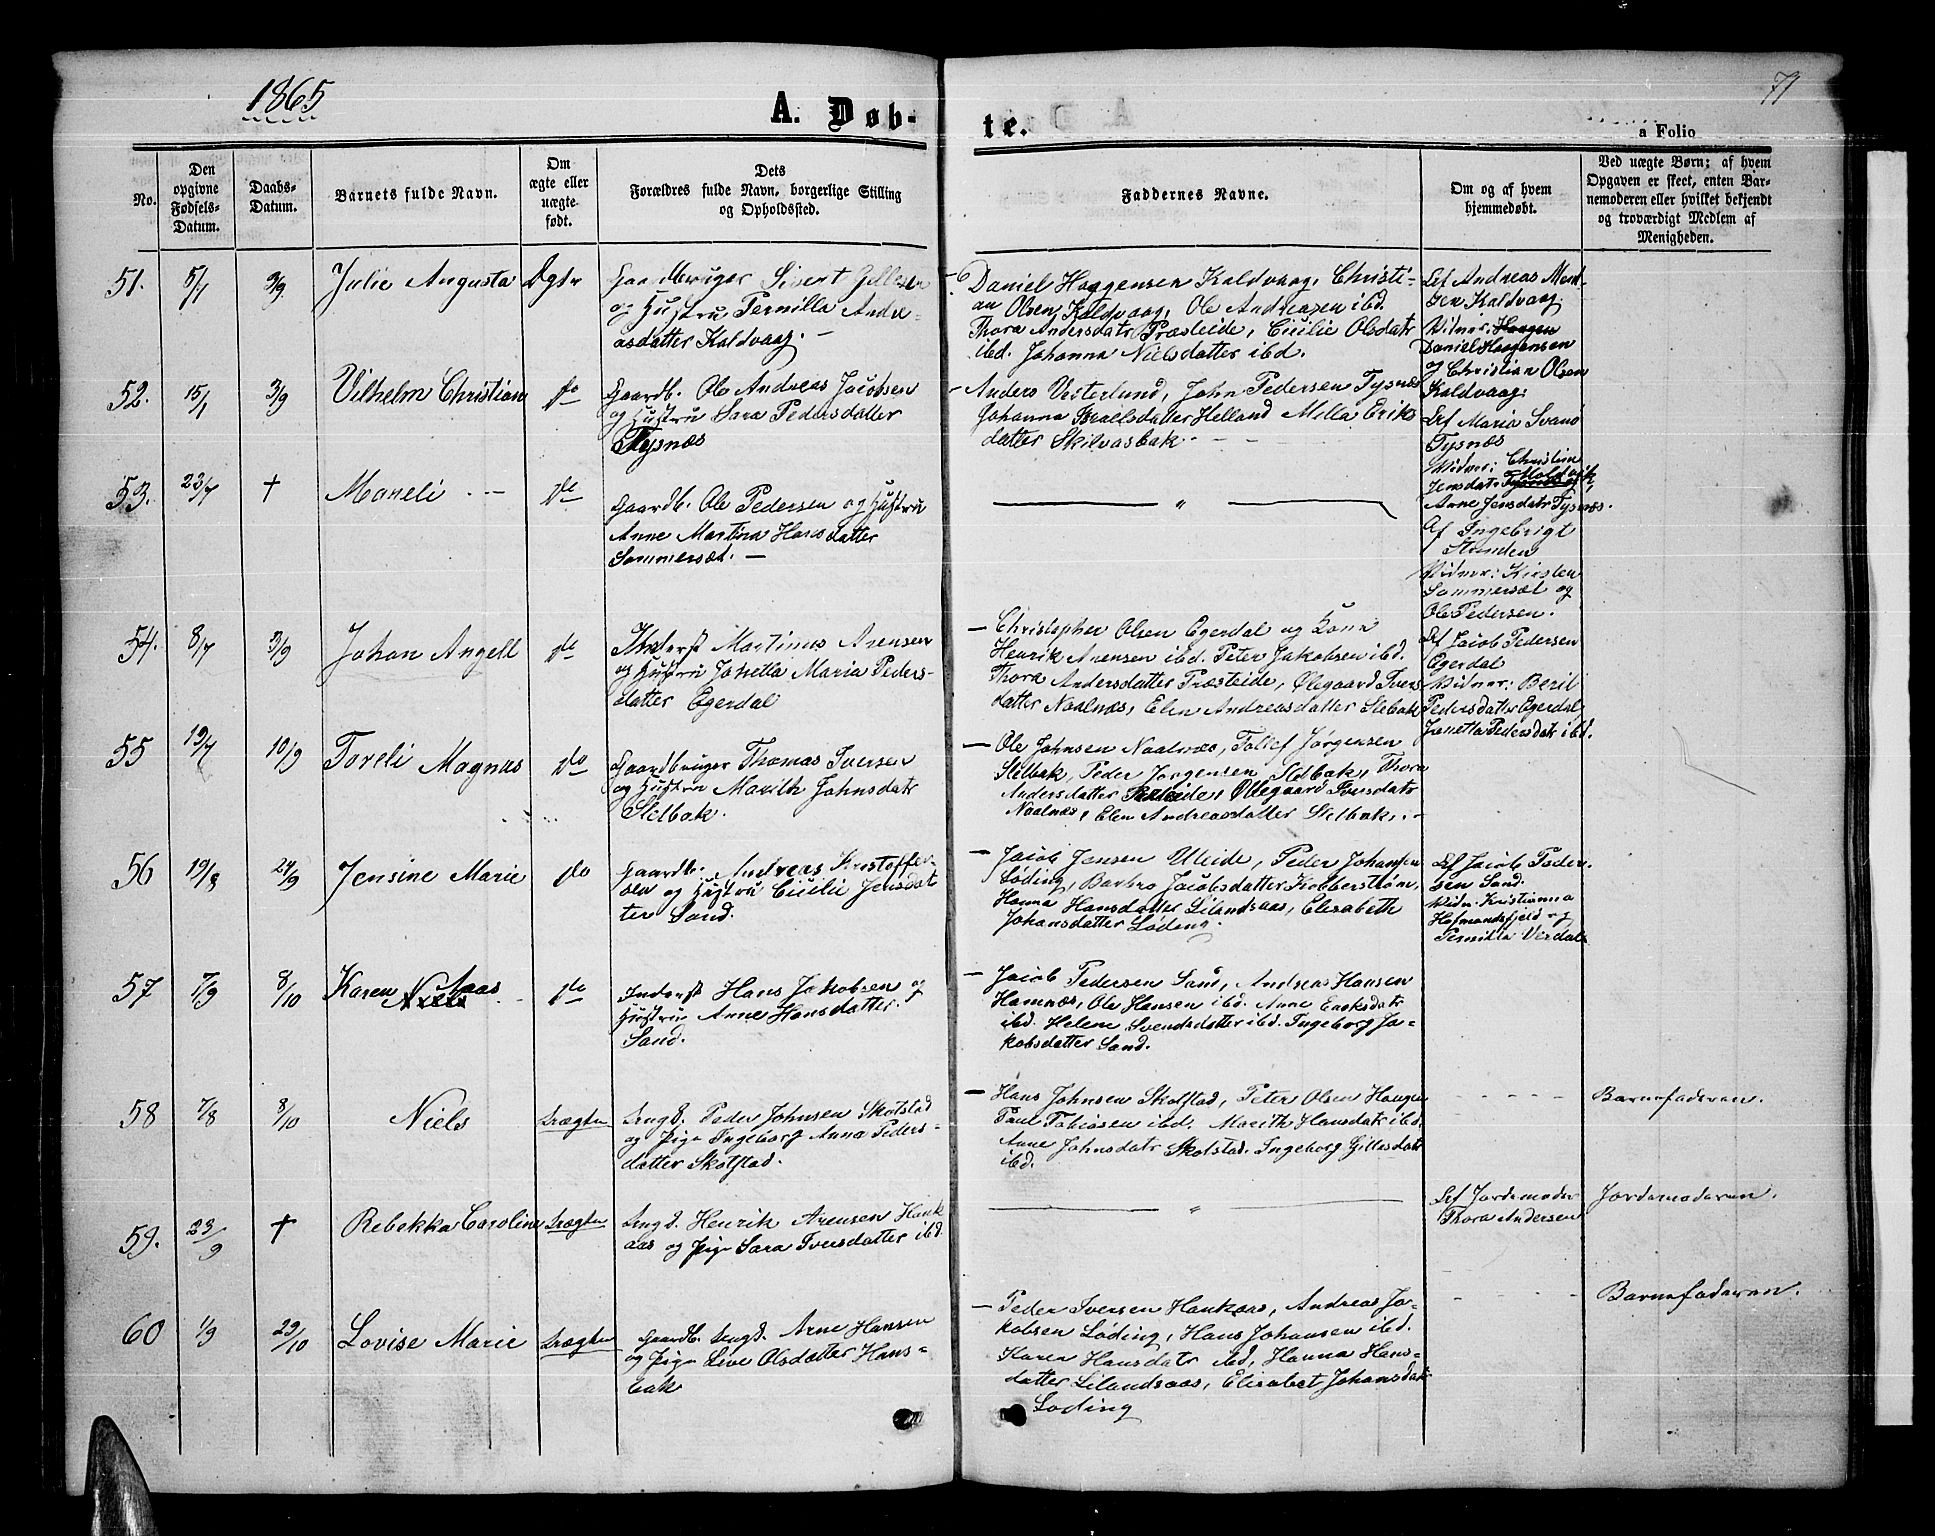 1865
79
A. Døb-
te.
a Folio
No.
Den
opgivne
Fødsels-
Datum.
Daabs-
Datum.
Barnets fulde Navn.
Om
ægte eller
uægte
født.
Dets
Forældres fulde Navn, borgerlige Stilling
og Opholdssted.
Faddernes Navne.
Om og af hvem
hjemmedøbt.
Ved uægte Børn; af hvem
Opgaven er skeet, enten Bar-
nemoderen eller hvilket bekjendt
og troværdigt Medlem af
Menigheden.
51. 5/1 3/9 Julie Augusta
Gaardbruger Sivert
og Hustru Pernilla Andre-
asdatter Kaldvaag. -
Daniel Haggensen Kaldvaag, Christi-
an Olsen Kaldvaag, Ole Andreasen ibd.
Thora Andersdatr Præsteide, Cicilie Olsdatr
ibd. Johanna Nielsdatter ibd.
Af Andreas
Kaldvaag.
Vidner: Haagen
Daniel Haagensen
og Christian Olsen
Kaldvaag.
52. 15/1 3/9 Vilhelm Christian do
Gaardb. Ole Andreas Jacobsen
og Hustru Sara Pedersdatter
Tysnæs
- Anders Vesterlund, John Pedersen Tysnæs
Johanna Israelsdatter Helland Milla Eriks
datter Skilvasbak.
Af Maria Svanø
Tysnæs
Vidner: Christian
Jensdatr
Anne Jensdatr Tysnæs.
53. 23/7 † Maneli do
Gaardb. Ole Pedersen og Hustru
Anne Martina Hansdatter
Sommersæt. -
"
Af Ingebrigt
Stunden
Vidner: Kirsten
Sommersæt og
Ole Pedersen.
54. 8/7 3/9 Johan Angell do
Inderst Martinus Arensen
og Hustru Janetta Maria Peders-
datter Egerdal
- Christopher Olsen Egerdal og Kona
Henrik Arensen ibd. Peter Jakobsen ibd.
Thora Andersdatter Præsteide, Ølegaard Ivers
datter Naalnæs, Elen Andreasdatter Stelbak
Af Jacob Pedersen
Egerdal
Vidner: Beril
Pedersdatter Egerdal
Janetta Pedersdatr ibd.
55 19/7 10/9 Toreli Magnus do
Gaardbruger Thomas Iversen
og Hustru Marith Johnsdatr
Stelbak.
- Ole Johnsen Naalnæs, Tollef Jørgensen
Stelbak, Peder Jørgensen Stelbak, Thora
Andersdatter Præsteide, Ollegaard Iversdatr
Naalnæs, Elen Andreasdatter Stelbak. -
56 19/8 24/9 Jensine Marie do
Gaardb. Andreas Kristoffer-
sen og Hustru Cicilie Jensdat
ter Sand.
- Jacob Jensen Uleide, Peder Johansen
Løding, Barbro Jacobsdatter Kobberstrøm,
Hanna Hansdatter Lilandsaas, Elisabeth
Johansdatter Løding.
Af Jacob Peder-
sen Sand.
Vidn. Kristianna
Hofmandsfjeld og
Pernilla Verdal
57 7/9 8/10 Karen Aaas do
Inderst Hans Jakobsen og
Hustru Anne Hansdatter
Sand.
- Jacob Pedersen Sand, Andreas Hansen
Hamnæs, Ole Hansen ibd. Anne Eriksdatr
ibd. Helene Svendsdatter ibd. Ingeborg Ja-
kobsdatter Sand.
58 7/8 8/10 Niels Uægten
Ungd. Peder Johnsen Skotstad
og Pige Ingeborg Anna Peders-
datter Skotstad.
- Hans Johnsen Skotstad, Peter Olsen Haugen
Paul Tobiasen ibd. Marith Hansdatr ibd.
Anne Johnsdatr Skotstad. Ingeborg Gillesdatr
ibd.
Barnefaderen.
59. 23/9 † Rebekka Caroline Uægten
Ungd. Henrik Arensen Hauk
aas og Pige Sara Iversdatter ibd.
"
Af Jordemoder
Thora Andersen
Jordemoderen.
60 1/9 29/10 Lovise Marie Uægten
Gaardb. Ungd. Arne Hansen
og Pige Live Olsdatter Hans-
bak
- Peder Iversen Haukaas, Andreas Ja-
kobsen Løding, Hans Johansen ibd.
Karen Hansdatr ibd, Hanna Hans-
datter Lilandsaas, Elisabet Johansdatr
Løding
Barnefaderen.